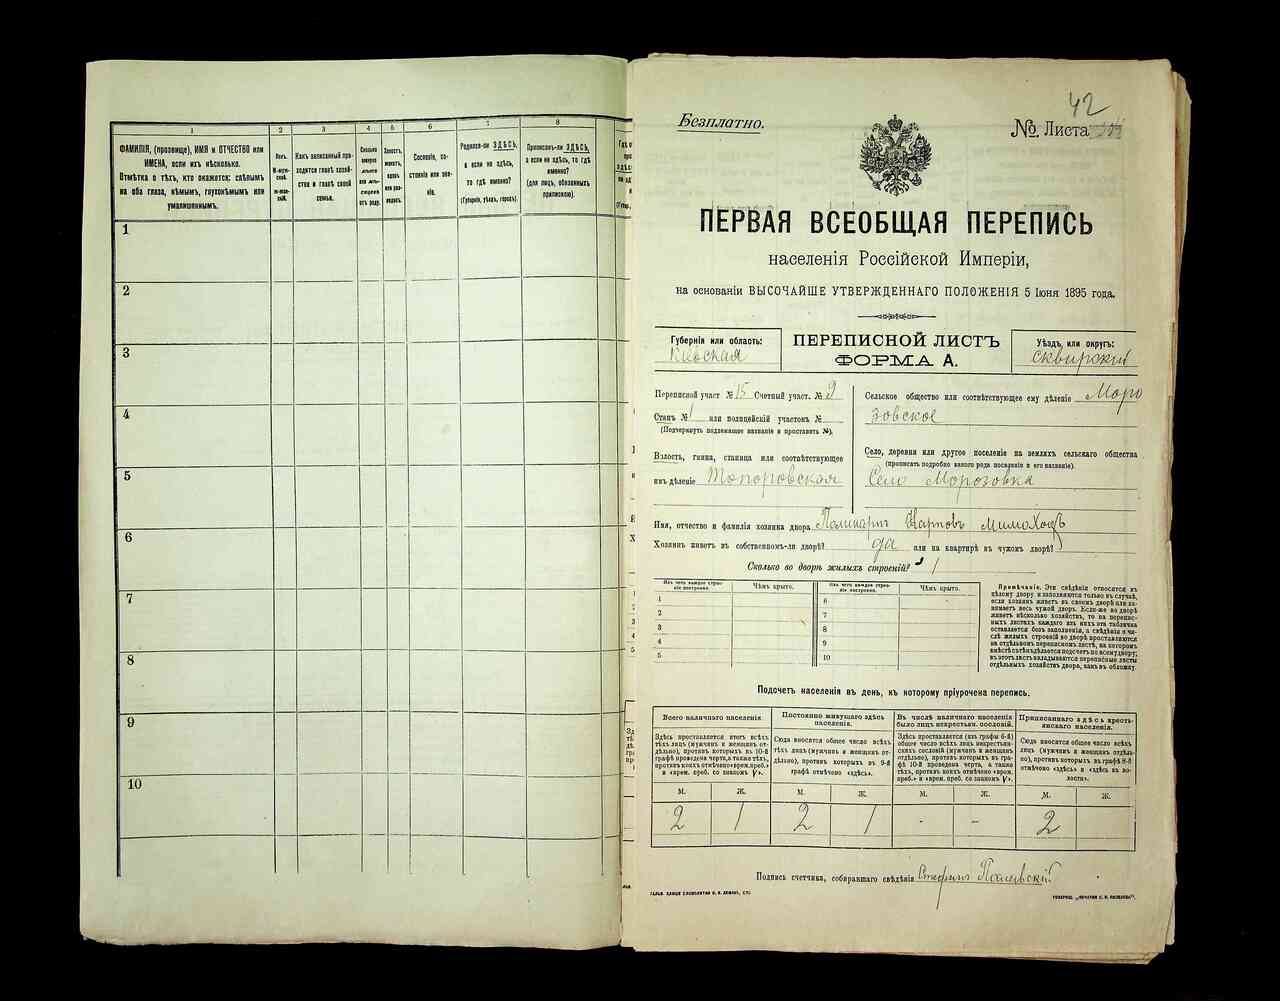 1
2
3
4
5
6
7
8
ФАМИЛІЯ, (прозвище), ИМЯ и ОТЧЕСТВО или
ИМЕНА, если ихъ нѣсколько.
Отмѣтка о тѣхъ, кто окажется: слѣпымъ
на оба глаза, нѣмымъ, глухонѣмымъ или
умалишеннымъ.
Какъ записанный при-
ходится главѣ хозяй-
ства и главѣ своей
семьи.
Сословіе, со-
стояніе или зва-
ніе.
Родился-ли ЗДѢСЬ,
а если не здѣсь,
то гдѣ именно?
(Губернія, уѣздъ, городъ).
Приписанъ-ли ЗДѢСЬ,
а если не здѣсь, то гдѣ
именно?
(для лицъ, обязанныхъ
припискою).
1
2
3
4
5
6
7
8
9
10
42
Безплатно.
№ Листа
ПЕРВАЯ ВСЕОБЩАЯ ПЕРЕПИСЬ
населенія Россійской Имперіи,
на основаніи ВЫСОЧАЙШЕ УТВЕРЖДЕННАГО ПОЛОЖЕНІЯ 5 Іюня 1895 года.
Губернія или область:
Кіевская
ПЕРЕПИСНОЙ ЛИСТЪ
ФОРМА А.
Уѣздъ, или округъ:
Сквирскій
Переписной участ № 15 Счетный участ. № 9
Станъ № 1 или полицейскій участокъ №
(Подчеркнуть подлежащее названіе и проставить №).
Волость, гмина, станица или соотвѣтствующее
имъ дѣленіе Топоровская
Сельское общество или соотвѣтствующее ему дѣленіе Моро
зовское
Село, деревня или другое поселеніе на земляхъ сельскаго общества
(прописать подробно какого рода поселеніе и его названіе).
Село Морозовка
Имя, отчество и фамилія хозяина двора Поликарп Карповъ Мимоходъ
Хозяинъ живетъ въ собственномъ-ли дворѣ? да или на квартирѣ въ чужомъ дворѣ?
Сколько во дворѣ жилыхъ строеній? 1
Изъ чего каждое строе-
ніе построено.
Чѣмъ крыто.
Изъ чего каждое строе-
ніе построено.
Чѣмъ крыто.
1
2
3
4
5
6
7
8
9
10
Примѣчаніе. Эти свѣдѣнія относятся къ
цѣлому двору и заполняются только въ случаѣ,
если хозяинъ живетъ въ своемъ дворѣ или за-
нимаетъ весь чужой дворъ. Если-же во дворѣ
живетъ нѣсколько хозяйствъ, то на перепис-
ныхъ листахъ каждаго изъ нихъ эта табличка
оставляется безъ заполненія, а свѣдѣнія о чи-
слѣ жилыхъ строеній во дворѣ проставляются
на отдѣльномъ переписномъ листѣ, на которомъ
вмѣстѣ съ тѣмъ дѣлается подсчетъ по всему двору;
въ этотъ листъ вкладываются переписные листы
отдѣльныхъ хозяйствъ двора, какъ въ обложку.
Подсчетъ населенія въ день, къ которому пріурочена перепись.
Всего наличнаго населенія.
Здѣсь проставляется итогъ всѣхъ
тѣхъ лицъ (мужчинъ и женщинъ от-
дѣльно), противъ которыхъ въ 10-й
графѣ проведена черта, а также тѣхъ,
противъ коихъ отмѣчено «врем. преб.»
и «врем. преб. со знакомъ V».
Постоянно живущаго здѣсь
населенія.
Сюда вносится общее число всѣхъ
тѣхъ лицъ (мужчинъ и женщинъ от-
дѣльно), противъ которыхъ въ 9-й
графѣ отмѣчено «здѣсь».
Въ числѣ наличнаго населенія
было лицъ некрестьян. сословій.
Здѣсь проставляется (изъ графы 6-й)
общее число всѣхъ лицъ некрестьян-
скихъ сословій (мужчинъ и женщинъ
отдѣльно), противъ которыхъ въ гра-
фѣ 10-й проведена черта, а также
тѣхъ, противъ коихъ отмѣчено «врем.
преб.» и «врем. преб. со знакомъ V».
Приписаннаго здѣсь кресть-
янскаго населенія.
Сюда вносится общее число всѣхъ
лицъ (мужчинъ и женщинъ отдѣль-
но), противъ которыхъ въ графѣ 8-й
отмѣчено «здѣсь» и «здѣсь въ во-
лости».
М. Ж. М. Ж. М. Ж. М. Ж.
2 1 2 1 - - 2
Подпись счетчика, собиравшаго свѣдѣнія